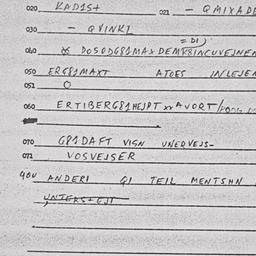 020 KAD1S+ 021 — QMIXADE
030 — QVINKL
= D1
060 DOSODG81MAXDEMK8INCUVEJNEN
050 ERG81MAXT ATOES INLEJEN
051 O
060 ERTIBERG81HEJPT AVORT/
070 G81DAFT VISN UNERVEJS-
071 VOSVEJSER
400 ANDERI QI TEIL MENTSHN